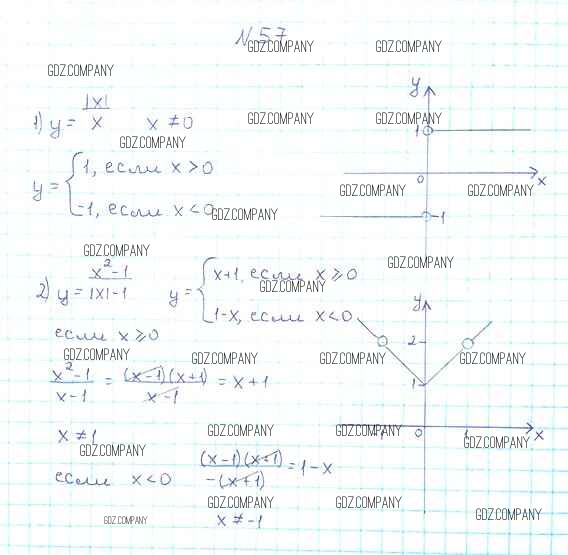 N 57
GDZ.COMPANY GDZ.COMPANY
GDZ.COMPANY
1) y = |x|/x x ≠ 0
GDZ.COMPANY GDZ.COMPANY
GDZ.COMPANY
y = { 1, если x > 0
-1, если x < 0
GDZ.COMPANY
y
1
0
x
-1
GDZ.COMPANY GDZ.COMPANY
GDZ.COMPANY GDZ.COMPANY
2) y = x²-1/|x|-1 y = { x+1, если x ≥ 0
GDZ.COMPANY
1-x, если x < 0
если x ≥ 0
GDZ.COMPANY GDZ.COMPANY GDZ.COMPANY GDZ.COMPANY
x²-1/x-1 = (x-1)(x+1)/x-1 = x+1
y
2
1
0
1
x
x ≠ 1
GDZ.COMPANY GDZ.COMPANY GDZ.COMPANY GDZ.COMPANY
если x < 0 (x-1)(x+1)/-(x+1) = 1-x
GDZ.COMPANY GDZ.COMPANY GDZ.COMPANY GDZ.COMPANY
x ≠ -1